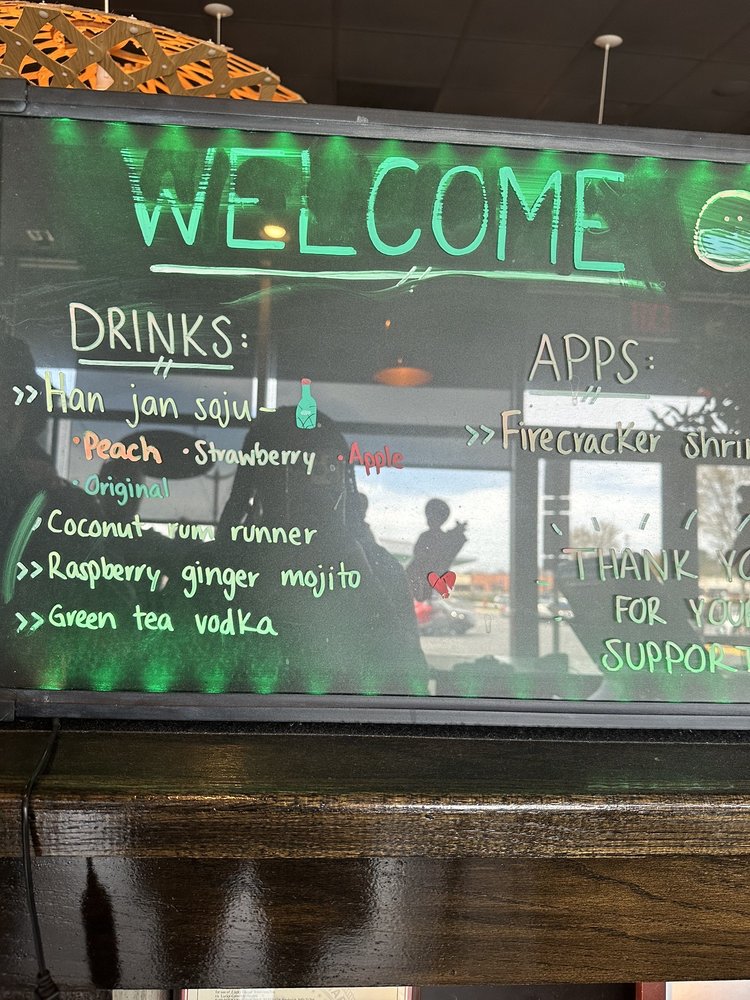 WELCOME
DRINKS:
>> Han jan soju -
• Peach • Strawberry • Apple
• Original
Coconut rum runner
>> Raspberry ginger mojito
>> Green tea vodka
APPS:
>> Firecracker
THANK
FOR
SUPPORT